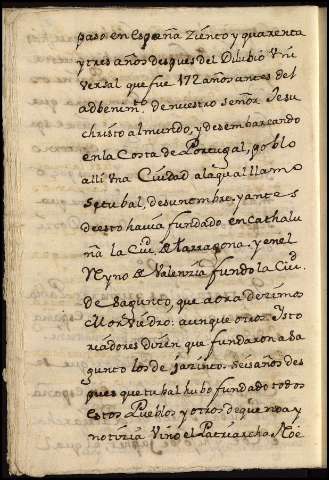 paso en España Ziento y quarenta
y tres años despues del Dilubio Vni
versal que fue 172 años antes del
adbenimto. de nuestro señor Jesu
christo al mundo, y desembarcando
en la Costa de Portugal, poblo
alli vna Ciudad a la qual llamo
Setubal, de su nombre. y antes
de esto hauia fundado en Cathalu
ña la Ciud. de tarragona. y en el
Reyno de Valenzia fundo la Ciud.
de sagunto, que aora dezimos
Morviedro: aunque otros Ysto
riadores dizen que fundaron a Sa
gunto los de jazinto. seis años des
pues que tubal hubo fundado todos
estos Pueblos y otros de que no ay
notizia Vino el Patriarcha Noe